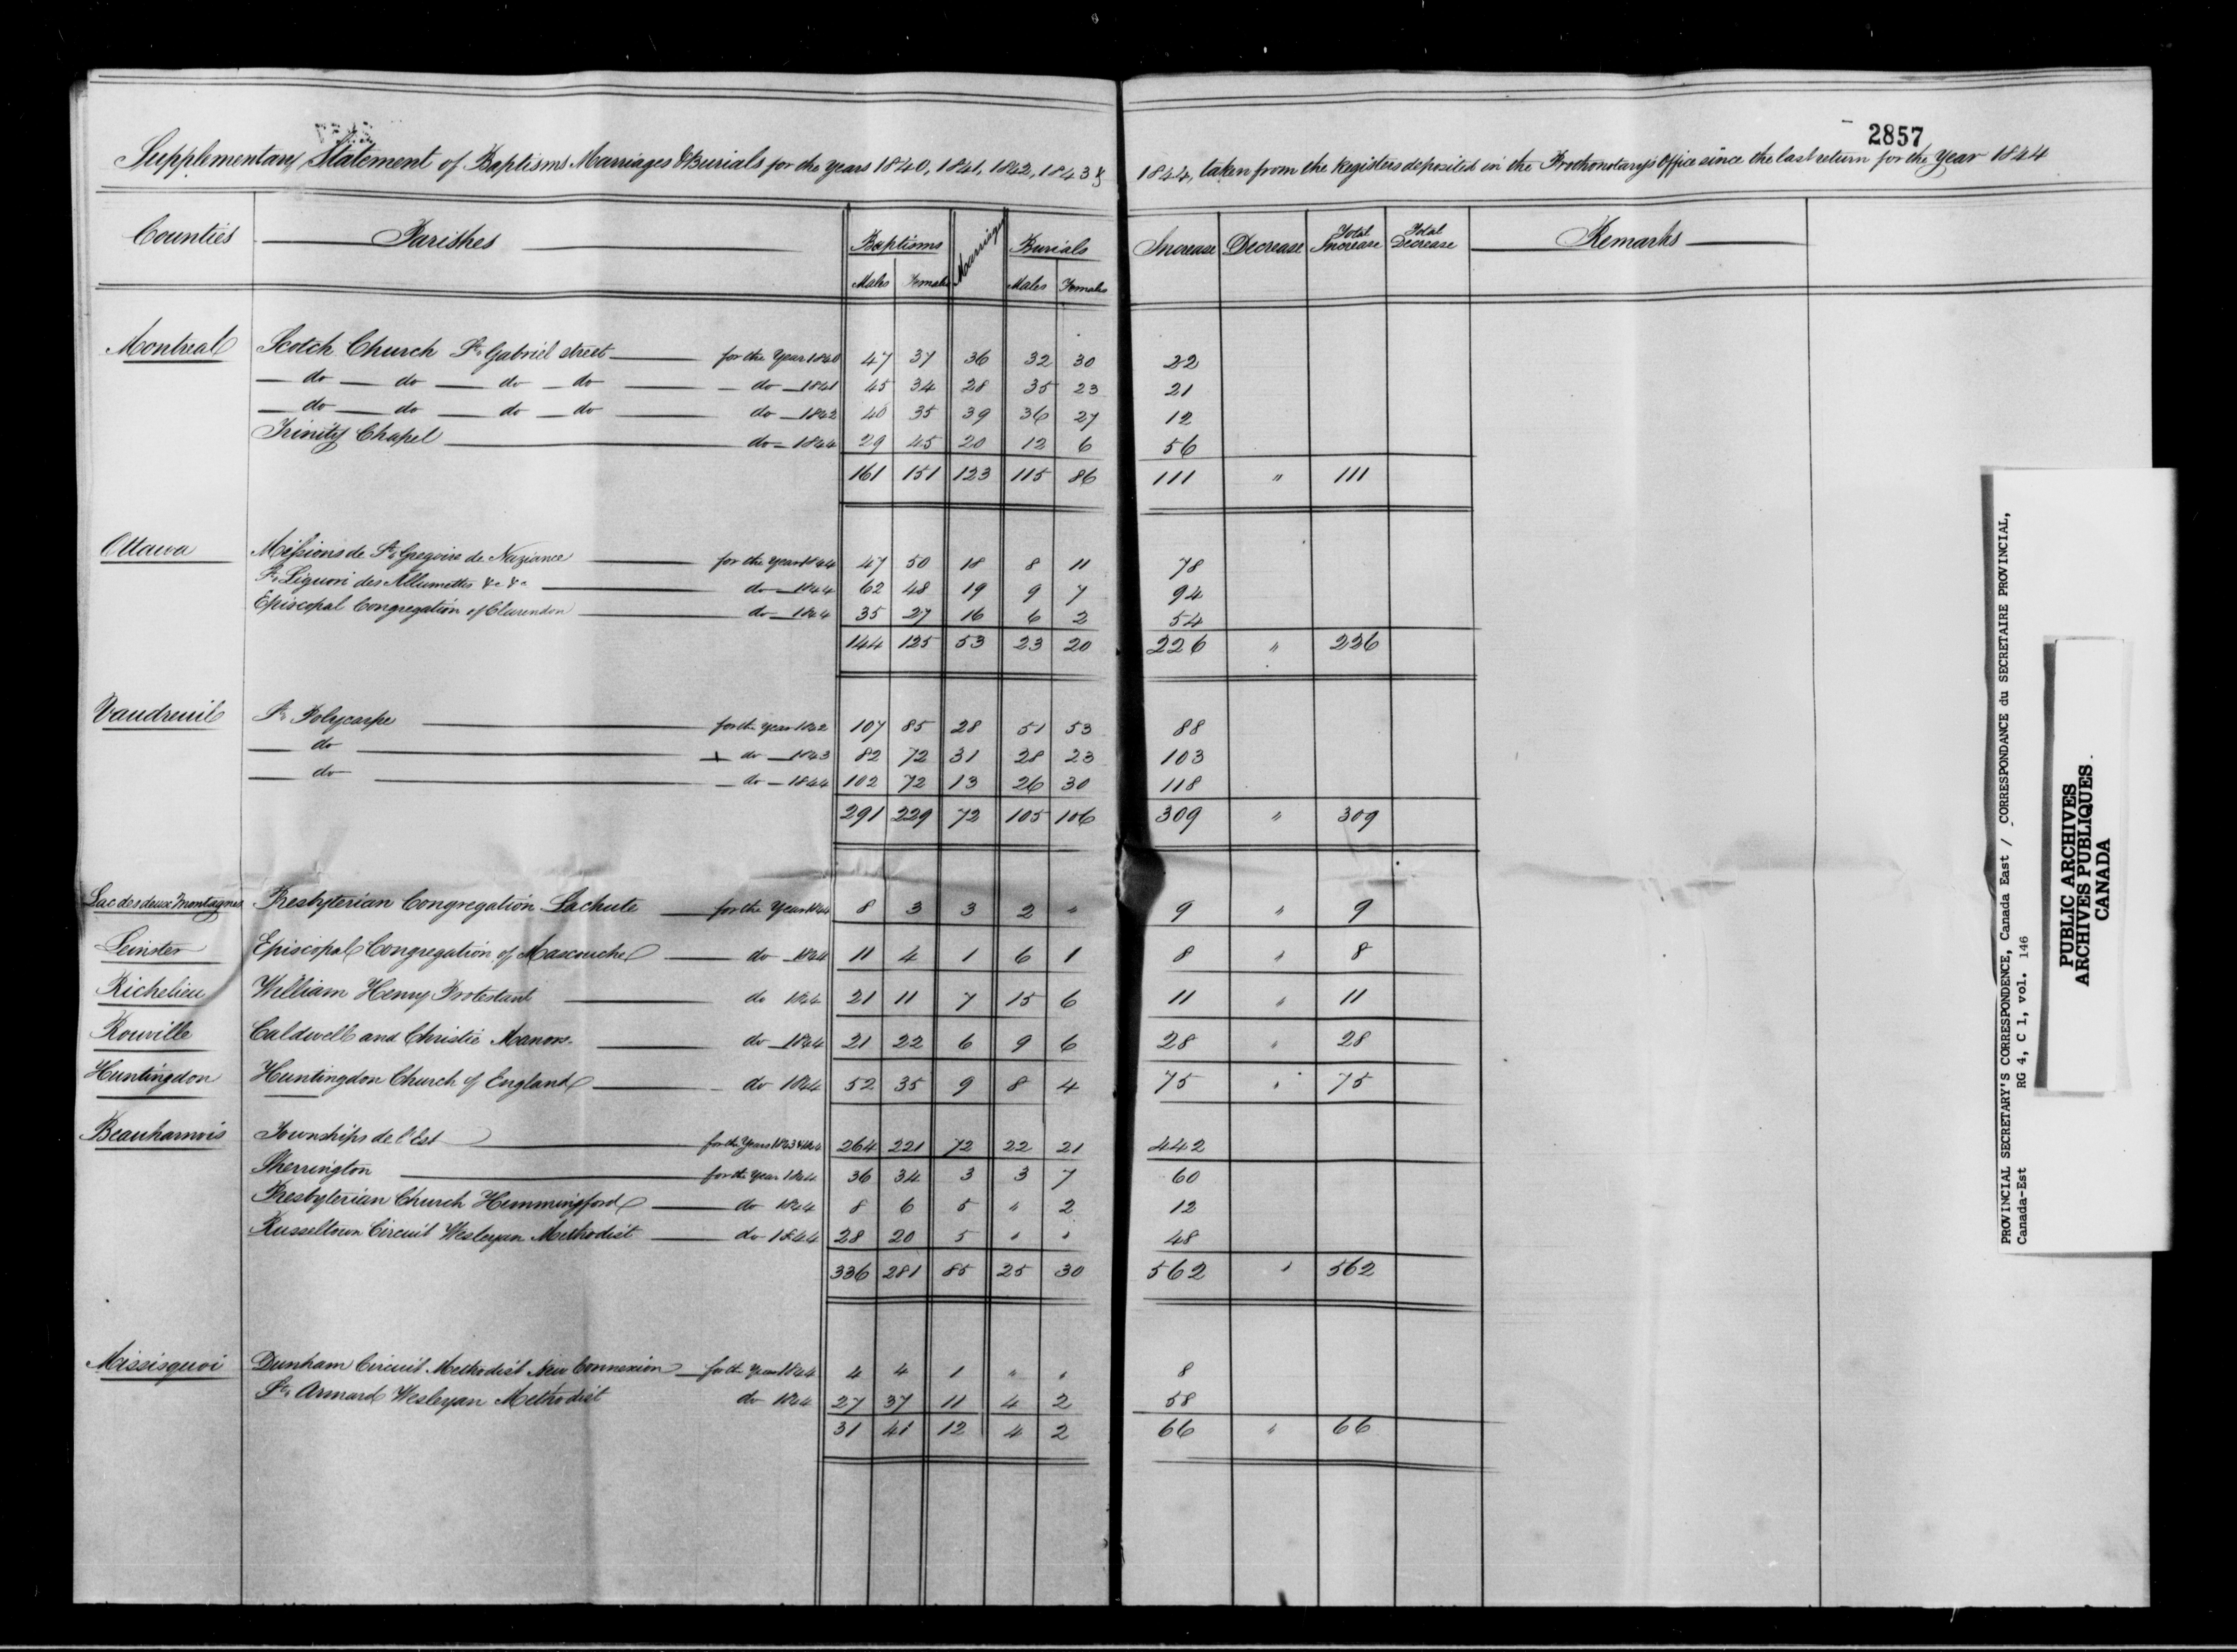 2857
Supplementary Statement of Baptisms Marriages & Burials for the years 1840, 1841, 1842, 1843 & 1844, taken from the Registers deposited in the Prothonotary's Office since the last return for the Year 1844
Counties Parishes Baptisms Marriages Burials Increase Decrease Total Increase Total Decrease Remarks
Males Females Males Females
Montreal Scotch Church St. Gabriel street for the Year 1840 47 37 36 32 30 22
do do do do do 1841 45 34 28 35 23 21
do do do do do 1842 40 35 39 36 27 12
Trinity Chapel do 1844 29 45 20 12 6 56
161 151 123 115 86 111 " 111
Ottawa Missions de St. Gregoire de Naziance for the Year 1844 47 50 18 8 11 78
St. Liguori des Allumettes &c &c do 1844 62 48 19 9 7 94
Episcopal Congregation of Clarendon do 1844 35 27 16 6 2 54
144 125 53 23 20 226 " 226
Vaudreuil St. Polycarpe for the Year 1842 107 85 28 51 53 88
do do 1843 82 72 31 28 23 103
do do 1844 102 72 13 26 30 118
291 229 72 105 106 309 " 309
Lac des deux Montagnes Presbyterian Congregation Lachute for the Year 1844 8 3 3 2 " 9 " 9
Leinster Episcopal Congregation of Mascouche do 1844 11 4 1 6 1 8 " 8
Richelieu William Henry Protestant do 1844 21 11 7 15 6 11 " 11
Rouville Caldwell and Christie Manors do 1844 21 22 6 9 6 28 " 28
Huntingdon Huntingdon Church of England do 1844 52 35 9 8 4 75 " 75
Beauharnois Townships de l'Est for the Years 1843 & 1844 264 221 72 22 21 442
Sherrington for the Year 1844 36 34 3 3 7 60
Presbyterian Church Hemmingford do 1844 8 6 5 " 2 12
Russeltown Circuit Wesleyan Methodist do 1844 28 20 5 " " 48
336 281 85 25 30 562 " 562
Missisquoi Dunham Circuit Methodist New Connexion for the Year 1844 4 4 1 " " 8
St. Armand Wesleyan Methodist do 1844 27 37 11 4 2 58
31 41 12 4 2 66 " 66
PROVINCIAL SECRETARY'S CORRESPONDENCE, Canada East / CORRESPONDANCE du SECRETAIRE PROVINCIAL,
Canada-Est RG 4, C 1, vol. 146
PUBLIC ARCHIVES
ARCHIVES PUBLIQUES
CANADA